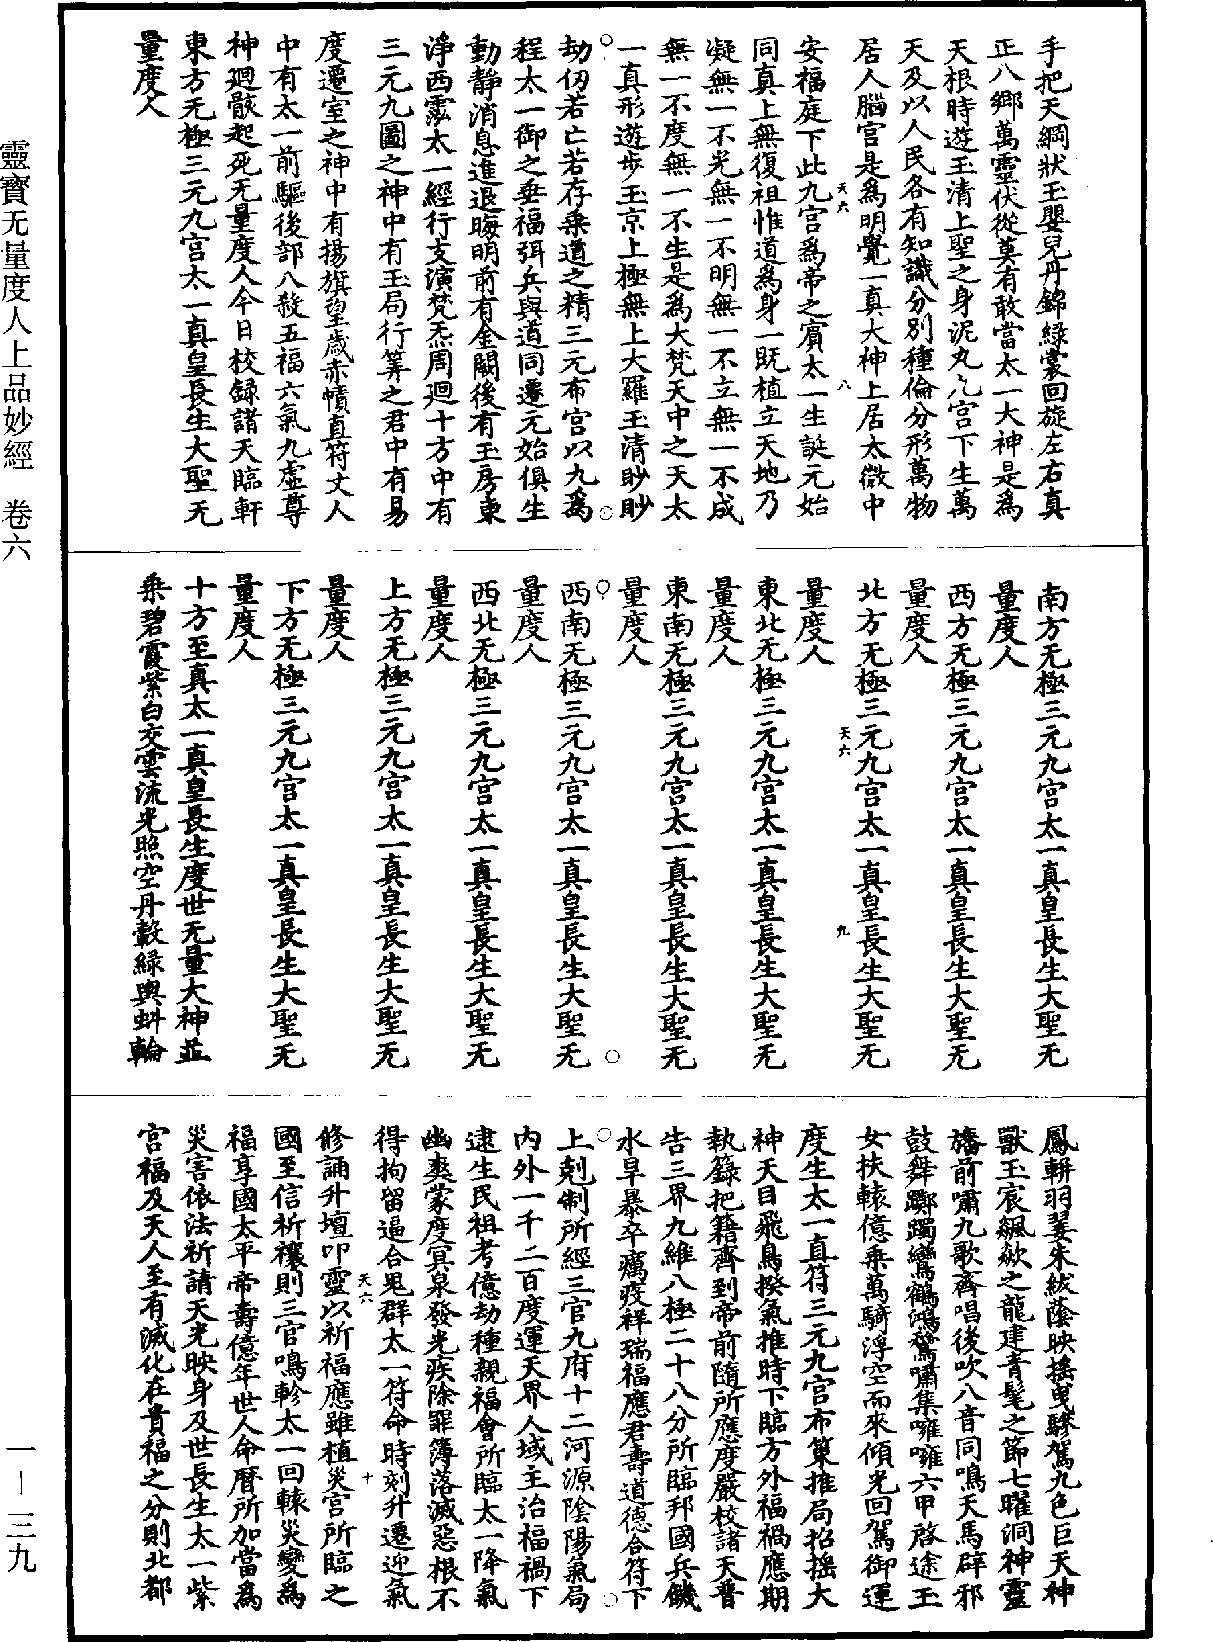 靈寶无量度人上品妙經 卷六
手把天綱狀玉嬰兒丹錦綠裳回旋左右真
正八鄉萬靈伏從莫有敢當太一大神是爲
天根時遊玉清上聖之身泥丸九宫下生萬
天及以人民各有知識分別種倫分形萬物
居人腦宫是爲明覺一真大神上居太微中
安福庭下此九宫爲帝之賓太一生誕元始
同真上無復祖惟道爲身一既植立天地乃
凝無一不光無一不明無一不立無一不成
無一不度無一不生是爲大梵天中之天太
一真形遊步玉京上極無上大羅玉清眇眇
劫仞若亡若存乗道之精三元布宫以九爲
程太一御之垂福弭兵與道同遷元始俱生
動靜消息進退晦明前有金闕後有玉房東
淨西靈太一經行支演梵炁周迴十方中有
三元九圖之神中有玉局行筭之君中有易
度遷室之神中有揚旗望歲赤幘直符丈人
中有太一前驅後部八殺五福六氣九虛尊
神迴骸起死无量度人今日校録諸天臨軒
東方无極三元九宫太一真皇長生大聖无
量度人
天六
八
南方无極三元九宫太一真皇長生大聖无
量度人
西方无極三元九宫太一真皇長生大聖无
量度人
北方无極三元九宫太一真皇長生大聖无
量度人
東北无極三元九宫太一真皇長生大聖无
量度人
東南无極三元九宫太一真皇長生大聖无
量度人
西南无極三元九宫太一真皇長生大聖无
量度人
西北无極三元九宫太一真皇長生大聖无
量度人
上方无極三元九宫太一真皇長生大聖无
量度人
下方无極三元九宫太一真皇長生大聖无
量度人
十方至真太一真皇長生度世无量大神並
乗碧霞紫白交雲流光照空丹轂綠輿蚪輪
天六
九
鳳軿羽翣朱紱蔭映揺曳驂駕九色巨天神
獸玉宸飆歘之龍建青髦之節七曜洞神靈
旛前嘯九歌齊唱後吹八音同鳴天馬辟邪
鼓舞躑躅鸞鶴鴻鷺嘯集嗈嗈六甲啓途玉
女扶轅億乗萬騎浮空而來傾光回駕御運
度生太一真符三元九宫布筞推局招揺大
神天目飛鳥揆氣推時下臨方外福禍應期
執籙把籍齊到帝前隨所應度嚴校諸天普
告三界九維八極二十八分所臨邦國兵饑
水旱暴卒癘疫祥瑞福應君壽道德合符下
上剋制所經三官九府十二河源陰陽氣局
内外一千二百度運天界人域主治福禍下
逮生民祖考億劫種親福會所臨太一降氣
幽爽蒙度冥泉發光疾除罪簿落滅惡根不
得拘留逼合鬼群太一符命時刻升遷迎氣
修誦升壇叩靈以祈福應雖植災宫所臨之
國至信祈禳則三官鳴軫太一回轅災變爲
福享國太平帝壽億年世人命曆所加當爲
災害依法祈請天光映身及世長生太一紫
宫福及天人至有滅化在貴福之分則北都
天六
十
一－三九